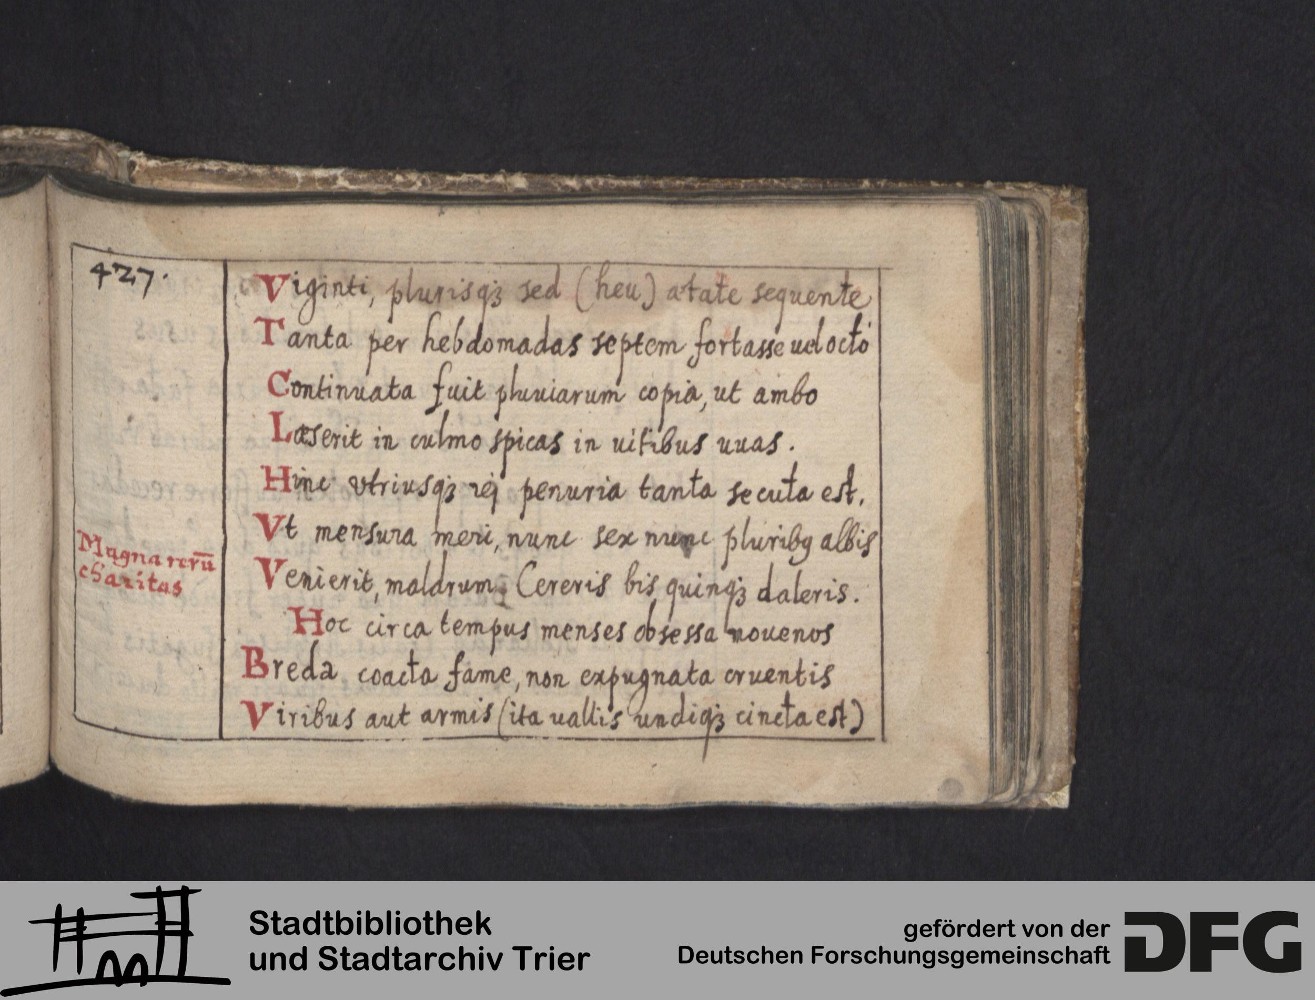 427.
Viginti, plurisqꝫ sed (heu) ætate sequente
Tanta per hebdomadas septem fortasse uel octo
Continuata fuit pluuiarum copia, ut ambo
Læserit in culmo spicas in uitibus uuas.
Hinc vtriusqꝫ rei penuria tanta secuta est,
Vt mensura meri, nunc sex nunc pluribꝰ albis
Magna rerū
charitas
Venierit, maldrum Cereris bis quinqꝫ daleris.
Hoc circa tempus menses obsessa nouenos
Breda coacta fame, non expugnata cruentis
Viribus aut armis (ita uallis undiqꝫ cincta est)
Stadtbibliothek
und Stadtarchiv Trier
gefördert von der
Deutschen Forschungsgemeinschaft
DFG